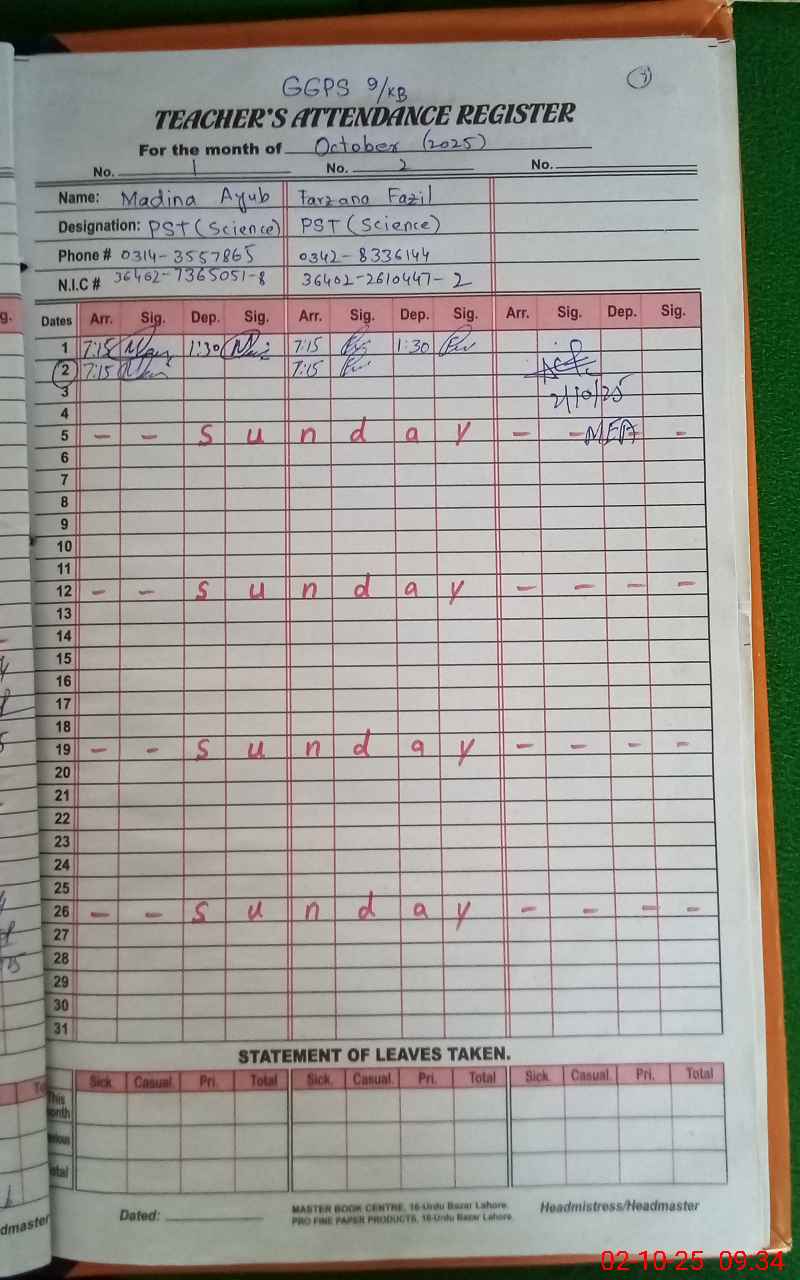 GGPS 9/KB
TEACHER'S ATTENDANCE REGISTER
For the month of October (2025)
No. 1 No. 2 No.
Name: Madina Ayub Farzana Fazil
Designation: PST (Science) PST (Science)
Phone # 0314-3557865 0342-8336144
N.I.C # 36402-7365051-8 36402-2610447-2
Dates Arr. Sig. Dep. Sig. Arr. Sig. Dep. Sig. Arr. Sig. Dep. Sig.
1 7:15 1:30 7:15 1:30
2 7:15 7:15
3 2/10/25
4
5 - - S u n d a y - - MEA -
6
7
8
9
10
11
12 - - S u n d a y - - - -
13
14
15
16
17
18
19 - - S u n d a y - - - -
20
21
22
23
24
25
26 - - S u n d a y - - - -
27
28
29
30
31
STATEMENT OF LEAVES TAKEN.
Sick. Casual. Pri. Total Sick. Casual. Pri. Total Sick. Casual. Pri. Total
This
month
Total
Dated: MASTER BOOK CENTRE, 16-Urdu Bazar Lahore. Headmistress/Headmaster
PRO FINE PAPER PRODUCTS, 16-Urdu Bazar Lahore.
02-10-25 09:34